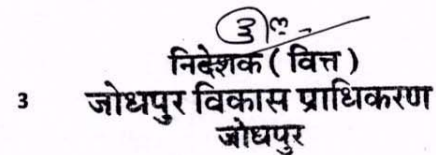 निदेशक ( वित्त )
3 जोधपुर विकास प्राधिकरण
जोधपुर